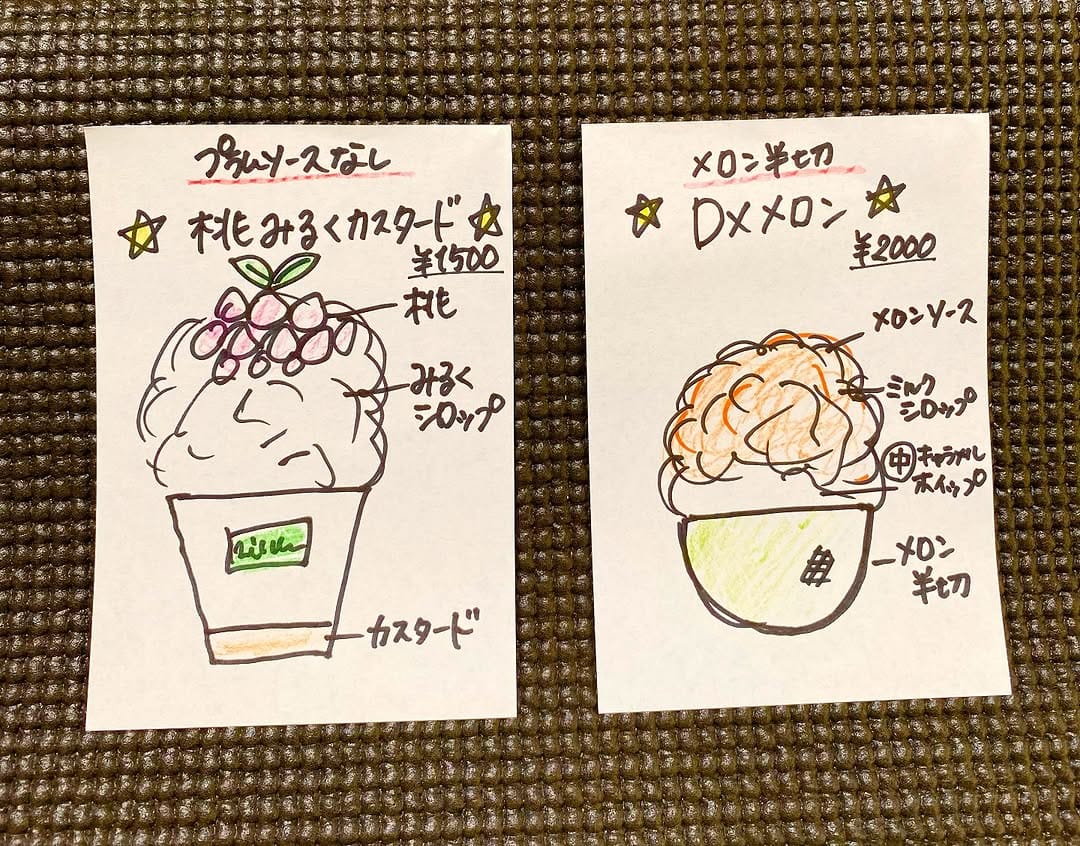 プラムソースなし
桃みるくカスタード
¥1500
桃
みるく
シロップ
カスタード
メロン半切
DXメロン
¥2000
メロンソース
ミルク
シロップ
中 キャラメル
ホイップ
メロン
半切